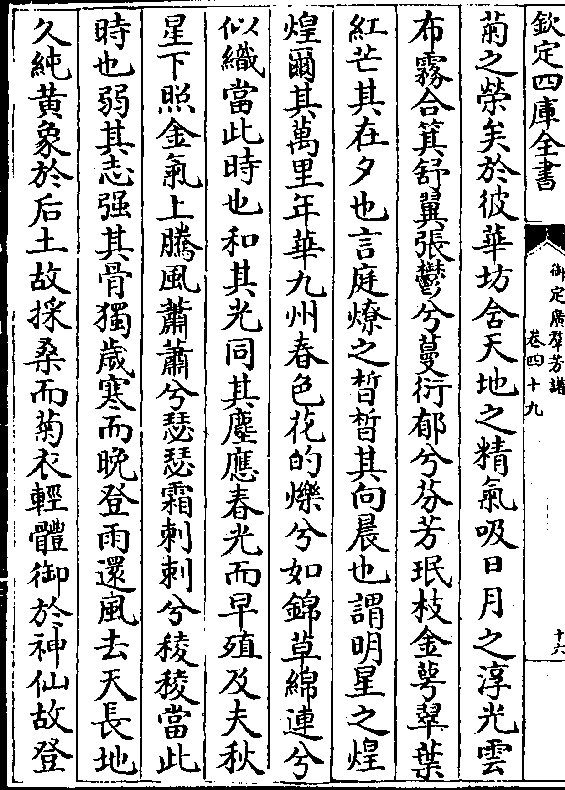 欽定四庫全書
御定廣羣芳譜
卷四十九
十六
菊之榮矣於彼華坊含天地之精氣吸日月之淳光雲
布霧合箕舒翼張鬱兮蔓衍郁兮芬芳珉枝金萼翠葉
紅芒其在夕也言庭燎之晳晳其向晨也謂明星之煌
煌爾其萬里年華九州春色花的爍兮如錦草綿連兮
似織當此時也和其光同其塵應春光而早殖及夫秋
星下照金氣上騰風蕭蕭兮瑟瑟霜刺刺兮稜稜當此
時也弱其志强其骨獨歲寒而晚登雨還風去天長地
久純黄象於后土故採桑而菊衣輕體御於神仙故登